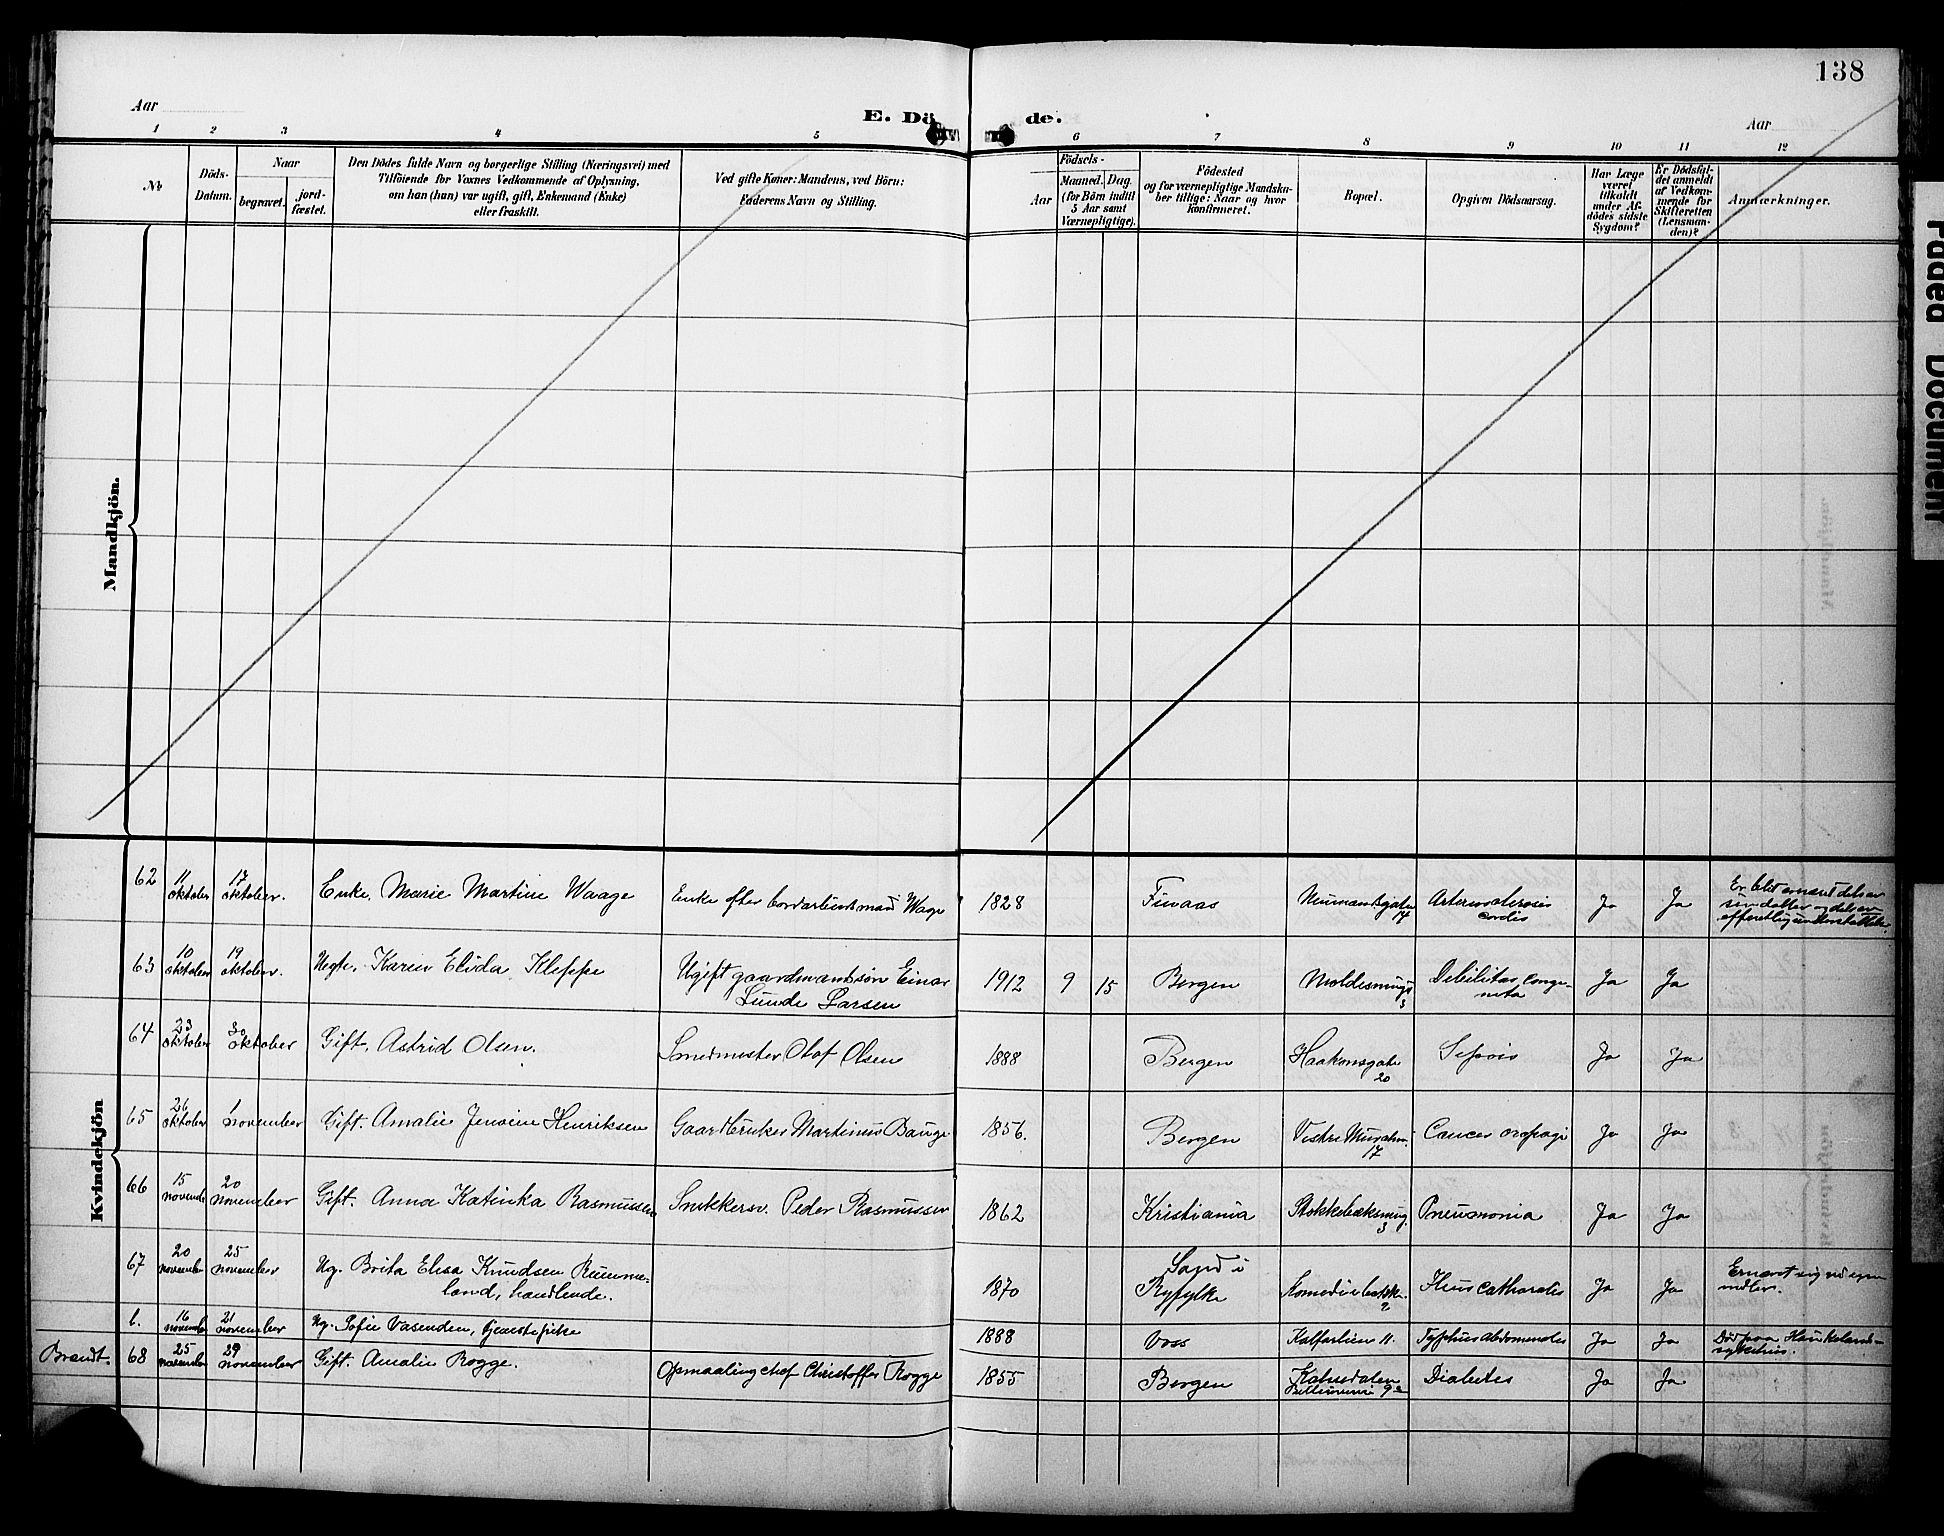 138
Aar
E. Dö de.
Aar
1 2 3 4 5 6 7 8 9 10 11 12
No
Döds-Datum.
Naar
begravet.
jord-fæstet.
Den Dödes fulde Navn og borgerlige Stilling (Næringsvei) med
Tilföiende for Voxnes Vedkommende af Oplysning,
om han (hun) var ugift, gift, Enkemand (Enke)
eller fraskilt.
Ved gifte Koner: Mandens, ved Börn:
Faderens Navn og Stilling.
Födsels-
Aar
Maaned. Dag.
(for Börn indtil
5 Aar samt
Værnepligtige).
Födested
og for værnepligtige Mandska-
ber tillige: Naar og hvor
konfirmeret.
Bopæl.
Opgiven Dödsaarsag.
Har Læge
været
tilkaldt
under Af-
dödes sidste
Sygdom?
Er Dödsfal-
det anmeldt
af Vedkom-
mende for
Skifteretten
(Lensman-
den)?
Anmærkninger.
Mandkjön.
Kvindekjön
62 11 oktober 17 oktober. Enke. Marie Martine Waage Enke efter Wage 1828 Finaas Neumannsgate 14 cordis Ja Ja
63 10 oktober 19 oktober. Uegte. Karen Elida Kleppe Ugift gaardmandssøn Einar Lunde Larsen 1912 9 15 Bergen Moldesmug 3 Debilitas congenita Ja Ja
64 23 oktober 30 oktober Gift. Astrid Olsen. Smedmester Olaf Olsen 1888 Bergen Haakonsgate 20 Sepsis Ja Ja
65 26 oktober 1 november Gift. Amalie Jensine Henriksen Gaardbruker Martinus Bauge 1856. Bergen Vestre Muralm. 17 Cancer Ja Ja
66 15 november 20 november Gift. Anna Katinka Rasmussen Snekkersv. Peder Rasmussen 1862 Kristiania Stokkebæksmug. 3 Pneumonia Ja Ja
67 20 november 25 november Ug. Brita Elisa Knudsen Rummeland, handlende. 1870 Sand i Ryfylke 2 Ja Ja
b. 16 november 21 november Ug. Sofie Vasenden, tjenestepike 1888 Voss Kalfarlien 11. Typhus abdominalis Ja Ja Død paa Haukelands-sykehus.
Brandt. 68 25 november 29 november Gift. Amalie Rogge. Opmaalingchef Christoffer Rogge 1855 Bergen Kalvedalen 9a Diabetes Ja Ja
Paded Document